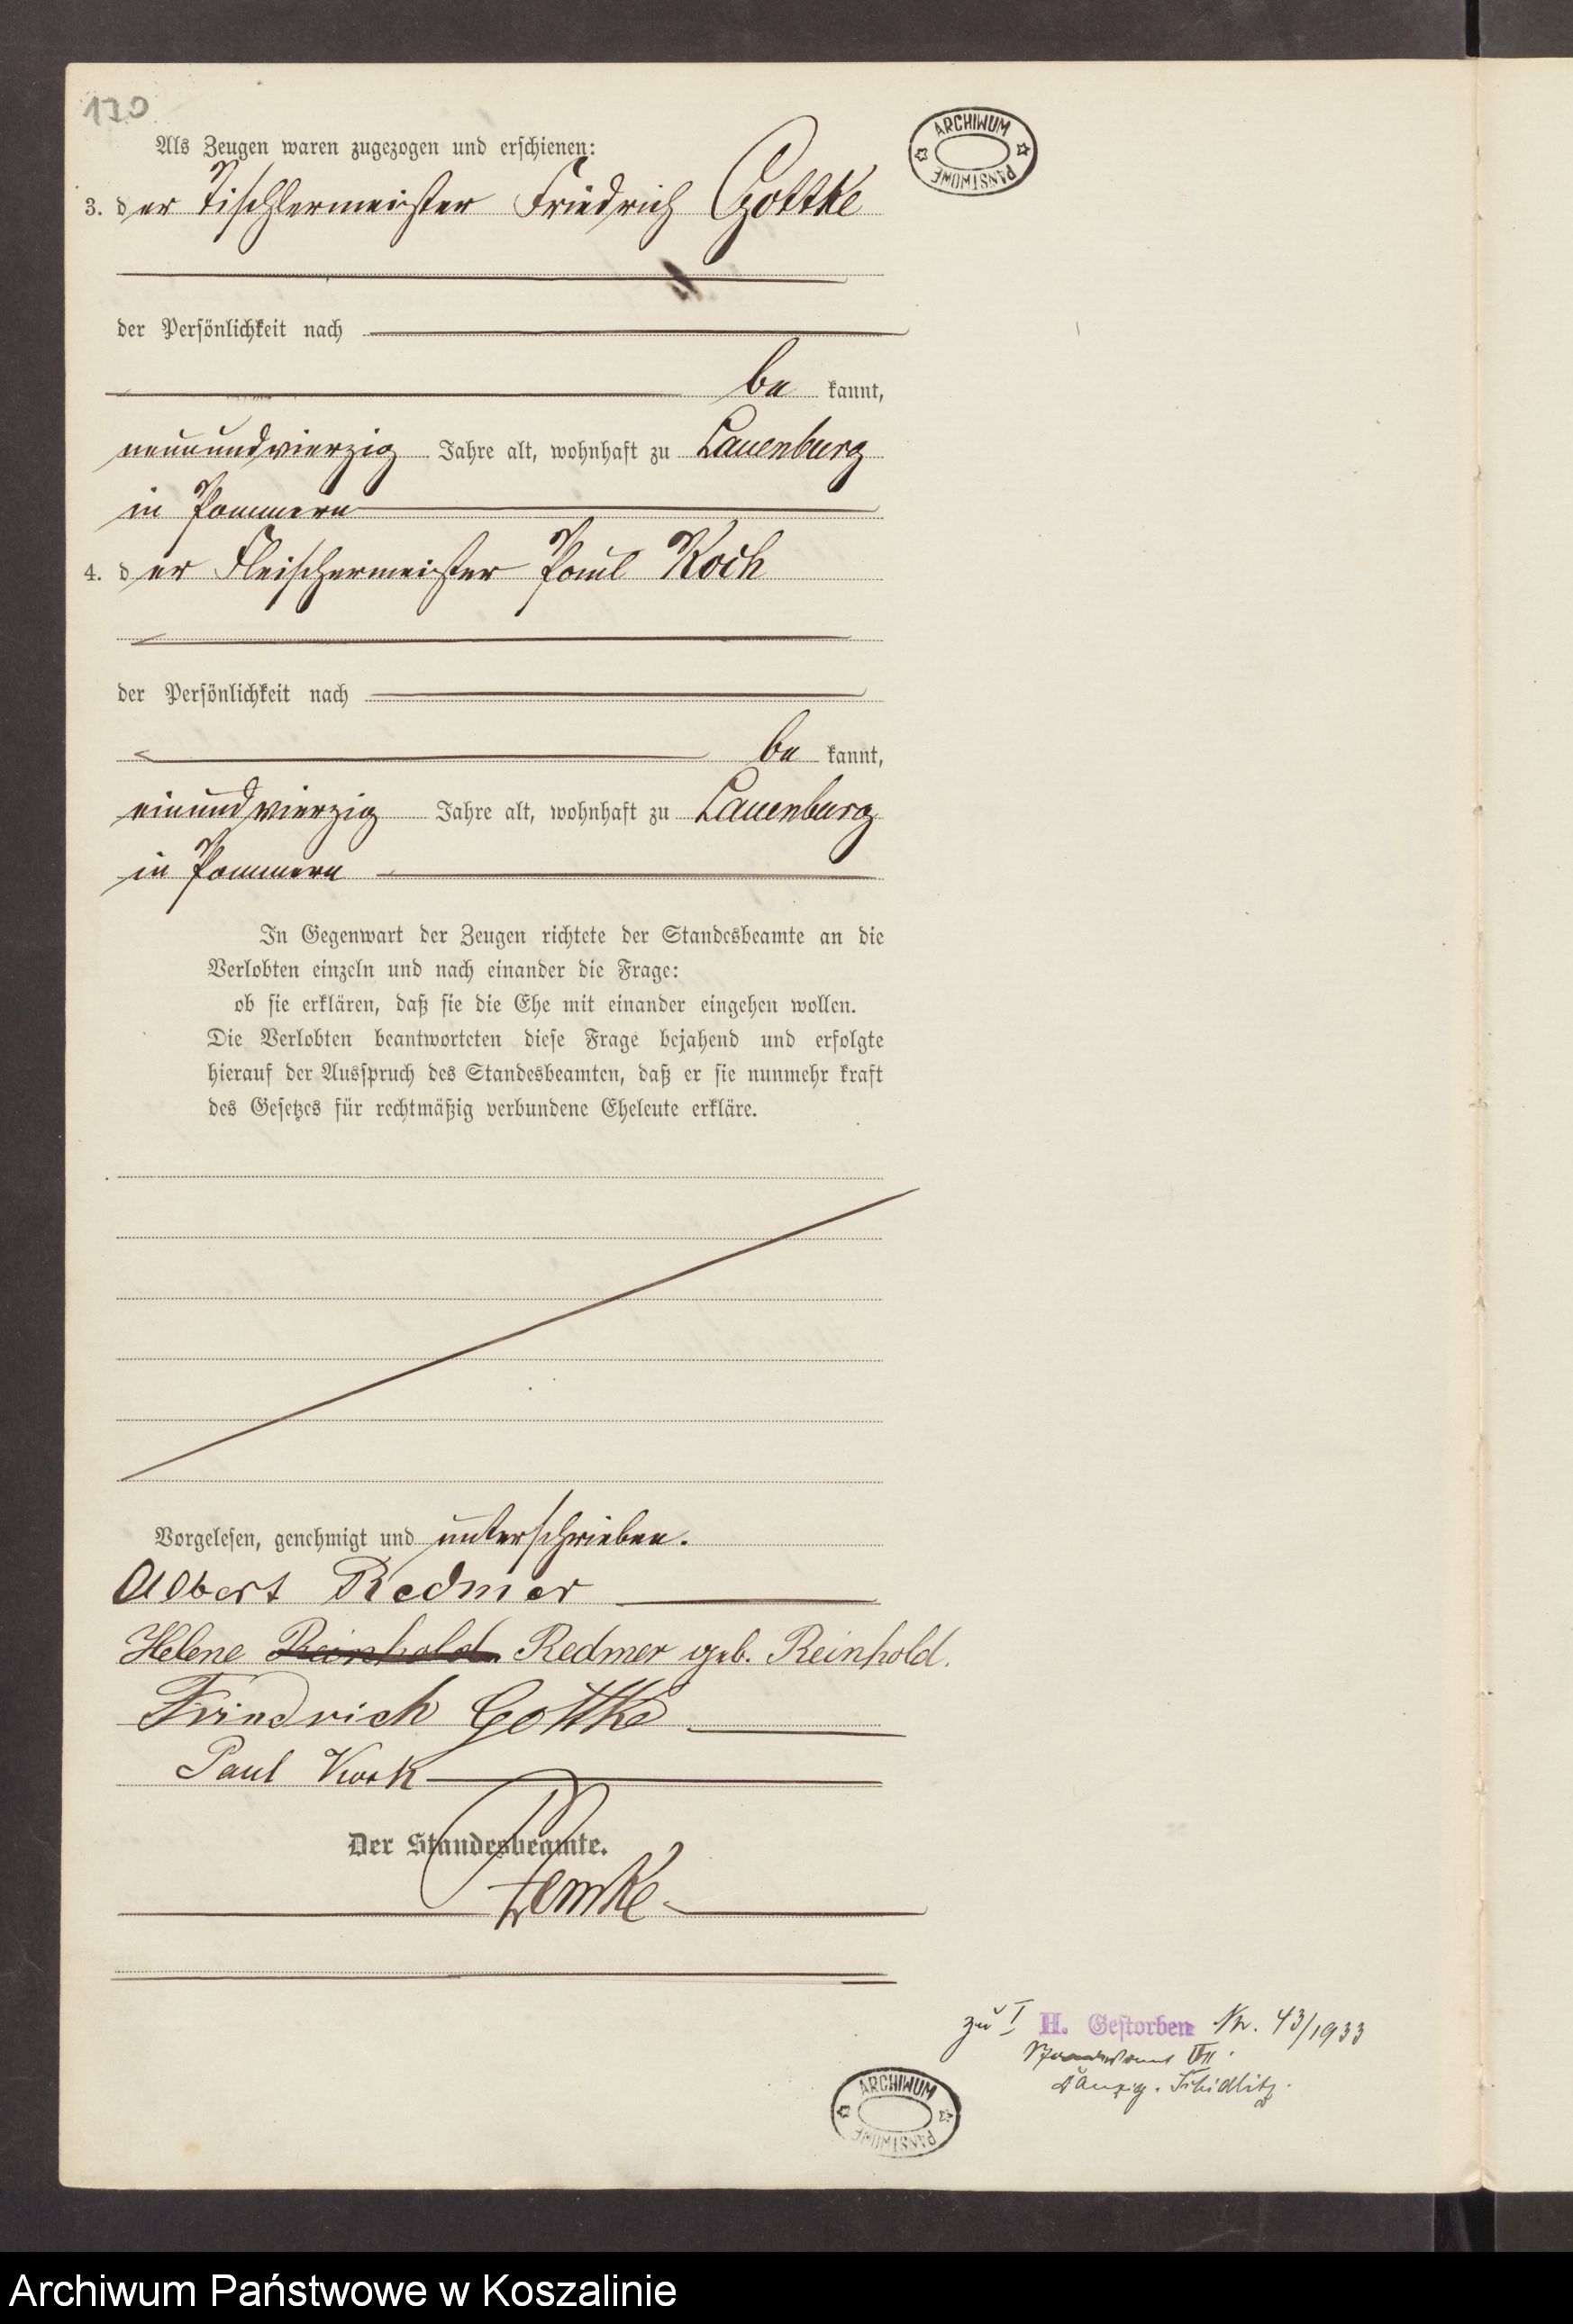 170
ARCHIWUM PAŃSTWOWE
Als Zeugen waren zugezogen und erschienen:
3. der Tischlermeister Friedrich Gottke
der Persönlichkeit nach
be kannt,
neunundvierzig Jahre alt, wohnhaft zu Lauenburg
in Pommern
4. der Fleischermeister Paul Koch
der Persönlichkeit nach
be kannt,
einundvierzig Jahre alt, wohnhaft zu Lauenburg
in Pommern
In Gegenwart der Zeugen richtete der Standesbeamte an die
Verlobten einzeln und nach einander die Frage:
ob sie erklären, daß sie die Ehe mit einander eingehen wollen.
Die Verlobten beantworteten diese Frage bejahend und erfolgte
hierauf der Ausspruch des Standesbeamten, daß er sie nunmehr kraft
des Gesetzes für rechtmäßig verbundene Eheleute erkläre.
Vorgelesen, genehmigt und unterschrieben.
Albert Redmer
Helene Reinhold Redmer geb. Reinhold.
Friedrich Gottke
Paul Koch
Der Standesbeamte.
Zemke
zu I H. Gestorben Nr. 43/1933
Standesamt VII
Danzig-Schidlitz.
ARCHIWUM PAŃSTWOWE
Archiwum Państwowe w Koszalinie